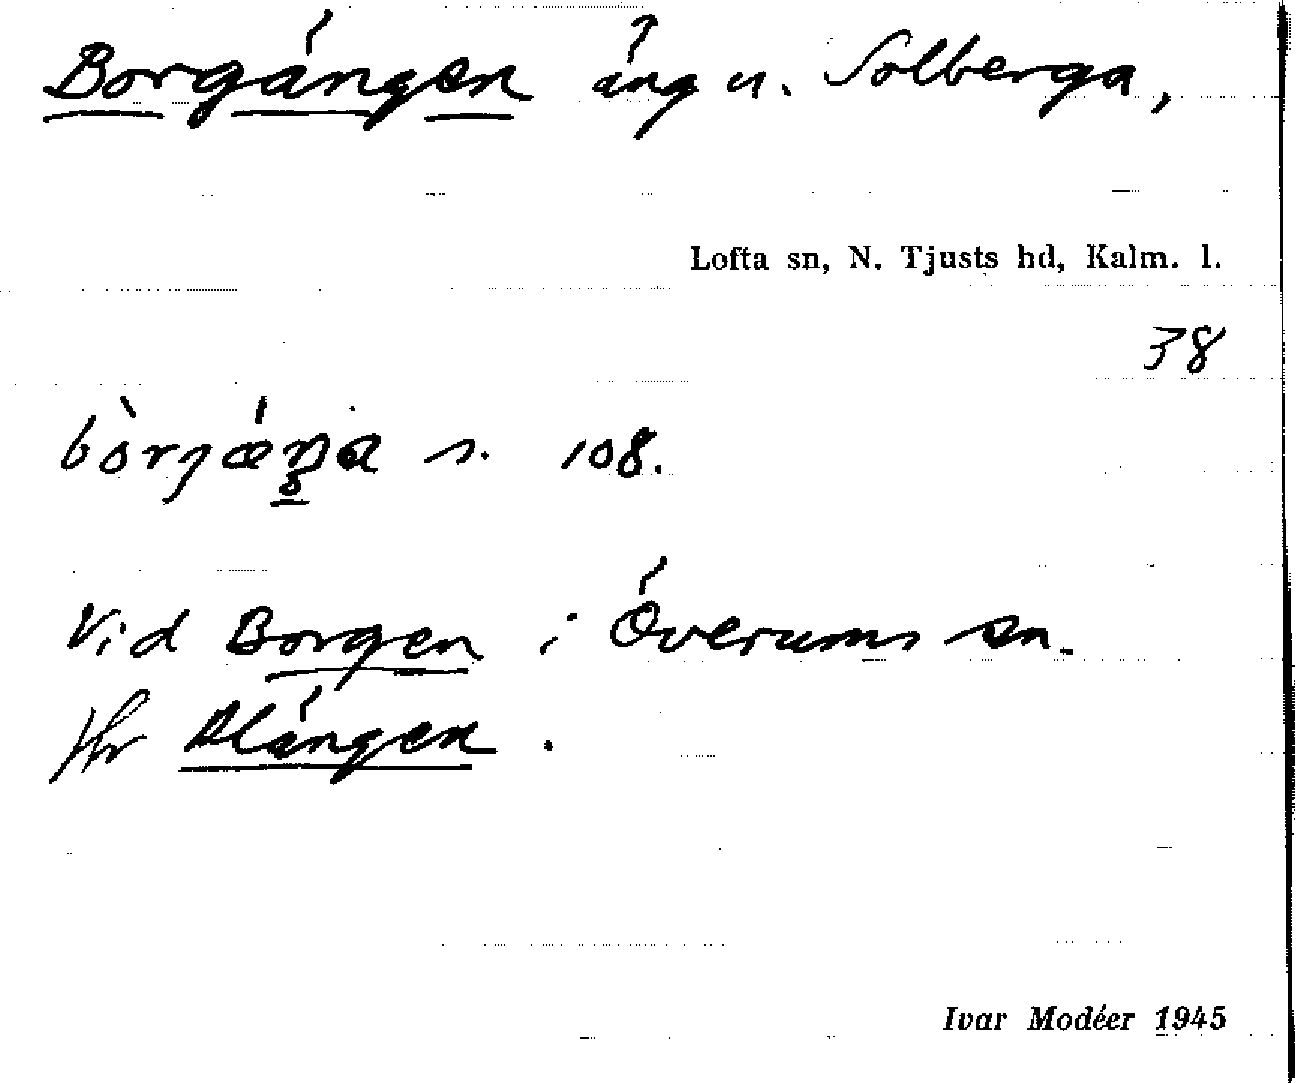 Borgängen äng u. Solberga,
Lofta sn, N. Tjusts hd, Kalm. l.
38
s. 108.
Vid Borgen i Överums sn.
Alängen.
Ivar Modéer 1945